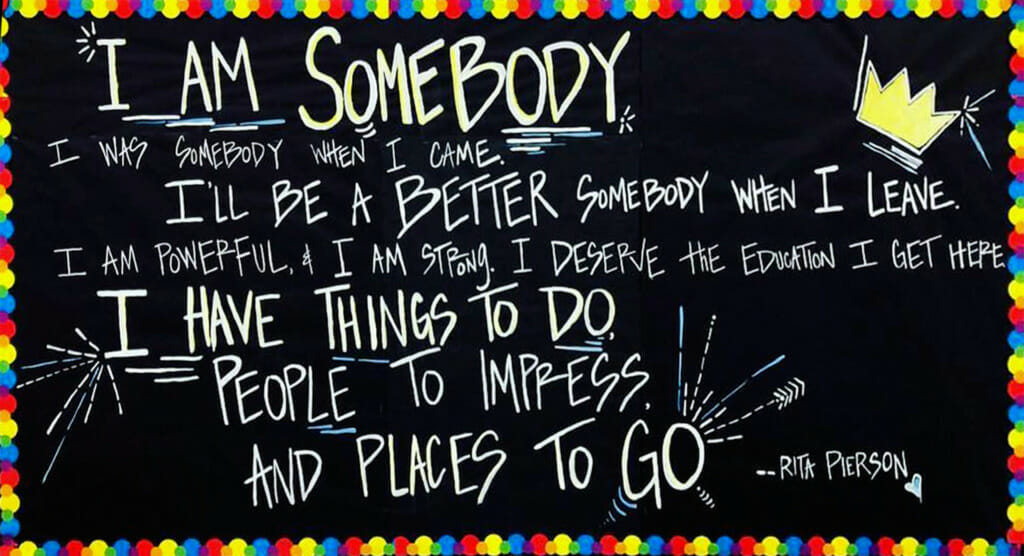 I AM SOMEBODY
I WAS SOMEBODY WHEN I CAME.
I'LL BE A BETTER SOMEBODY WHEN I LEAVE.
I AM POWERFUL, & I AM STRONG. I DESERVE the EDUCATION I GET HERE
I HAVE THINGS TO DO.
PEOPLE TO IMPRESS.
AND PLACES TO GO.
-- RITA PIERSON